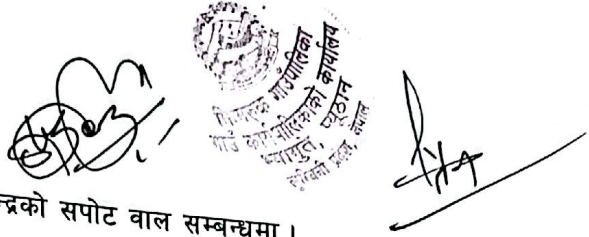 गाउँपालिका
गाउँ कार्यपालिकाको कार्यालय
प्यूठान
लुम्बिनी प्रदेश, नेपाल
न्द्रको सपोट वाल सम्बन्धमा ।